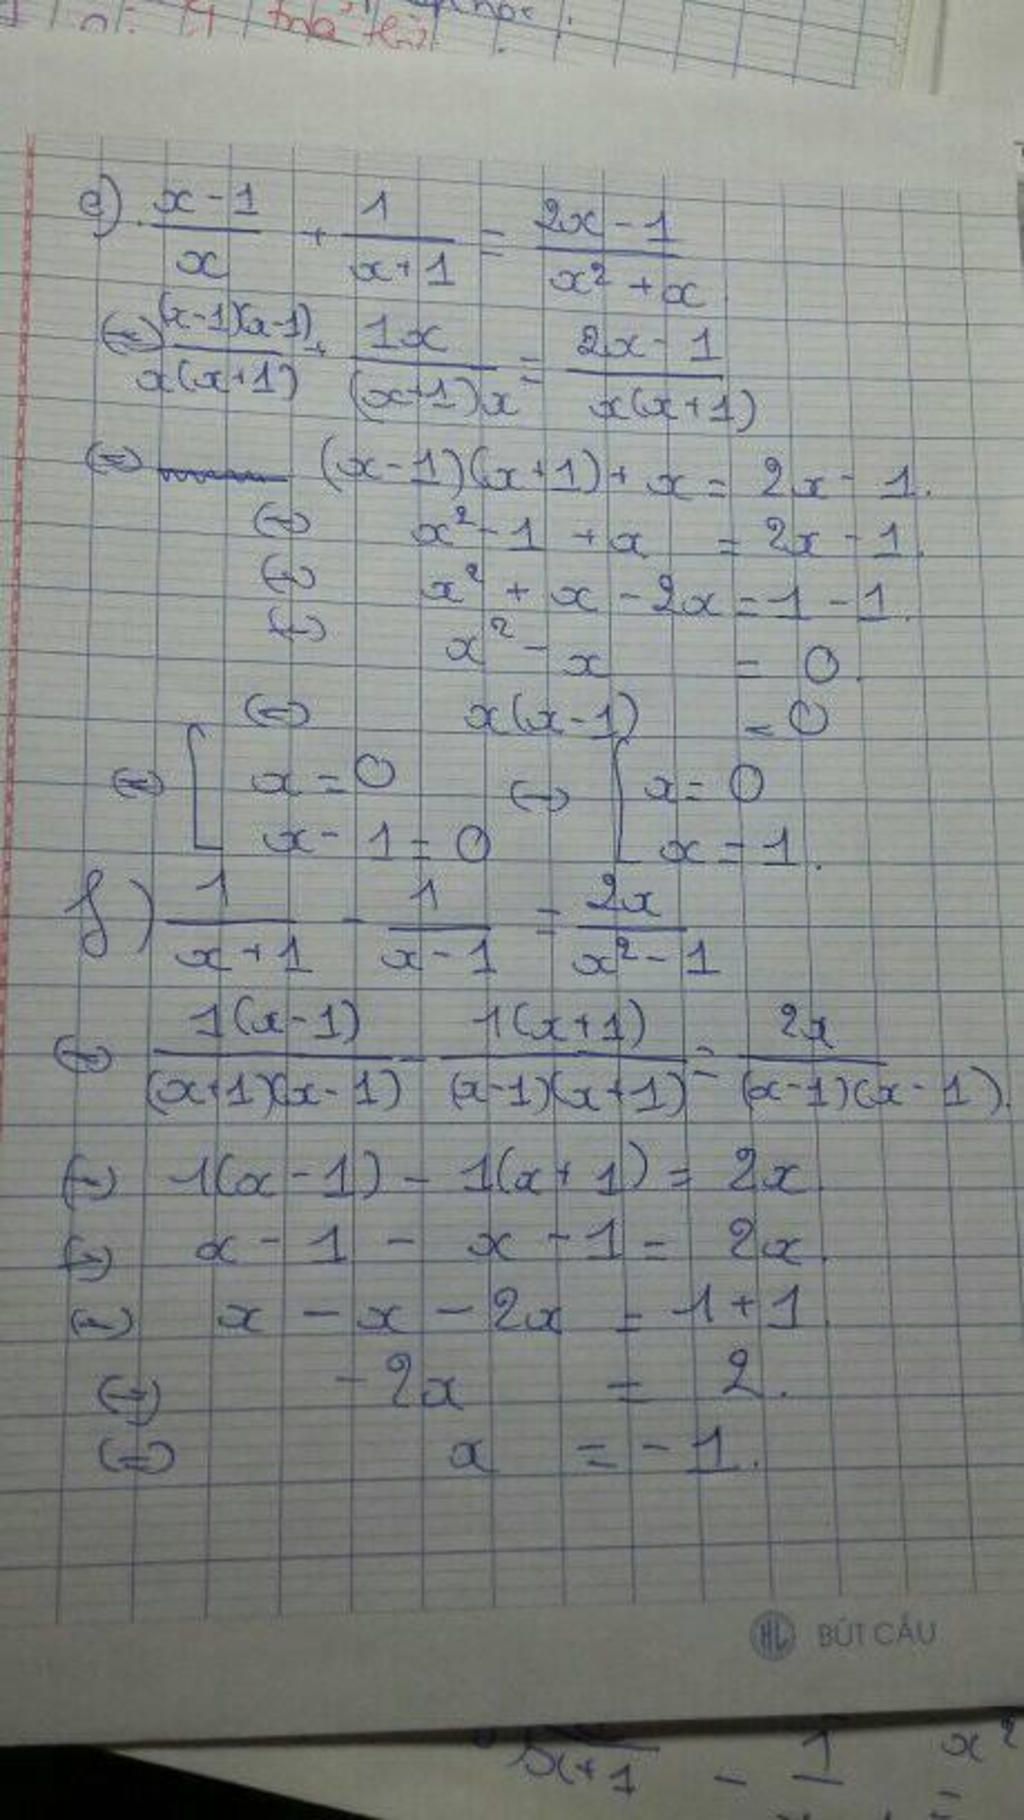 thả
e) x-1/x + 1/x+1 = 2x-1/x²+x
(=) (x-1)(x-1)/x(x+1) + 1x/(x+1)x = 2x-1/x(x+1)
(=) (x-1)(x+1)+x = 2x-1.
(=) x²-1+x = 2x-1.
(=) x²+x-2x = 1-1.
(=) x²-x = 0.
(=) x(x-1) = 0
(=) [ x=0 (=) [ x=0
x-1=0 x=1.
f) 1/x+1 - 1/x-1 = 2x/x²-1
(=) 1(x-1)/(x+1)(x-1) - 1(x+1)/(x-1)(x+1) = 2x/(x-1)(x-1).
(=) 1(x-1) - 1(x+1) = 2x
(=) x-1-x-1 = 2x.
(=) x-x-2x = 1+1
(=) -2x = 2.
(=) x = -1.
HL BÚT CẦU
x+1 - 1 x²
=